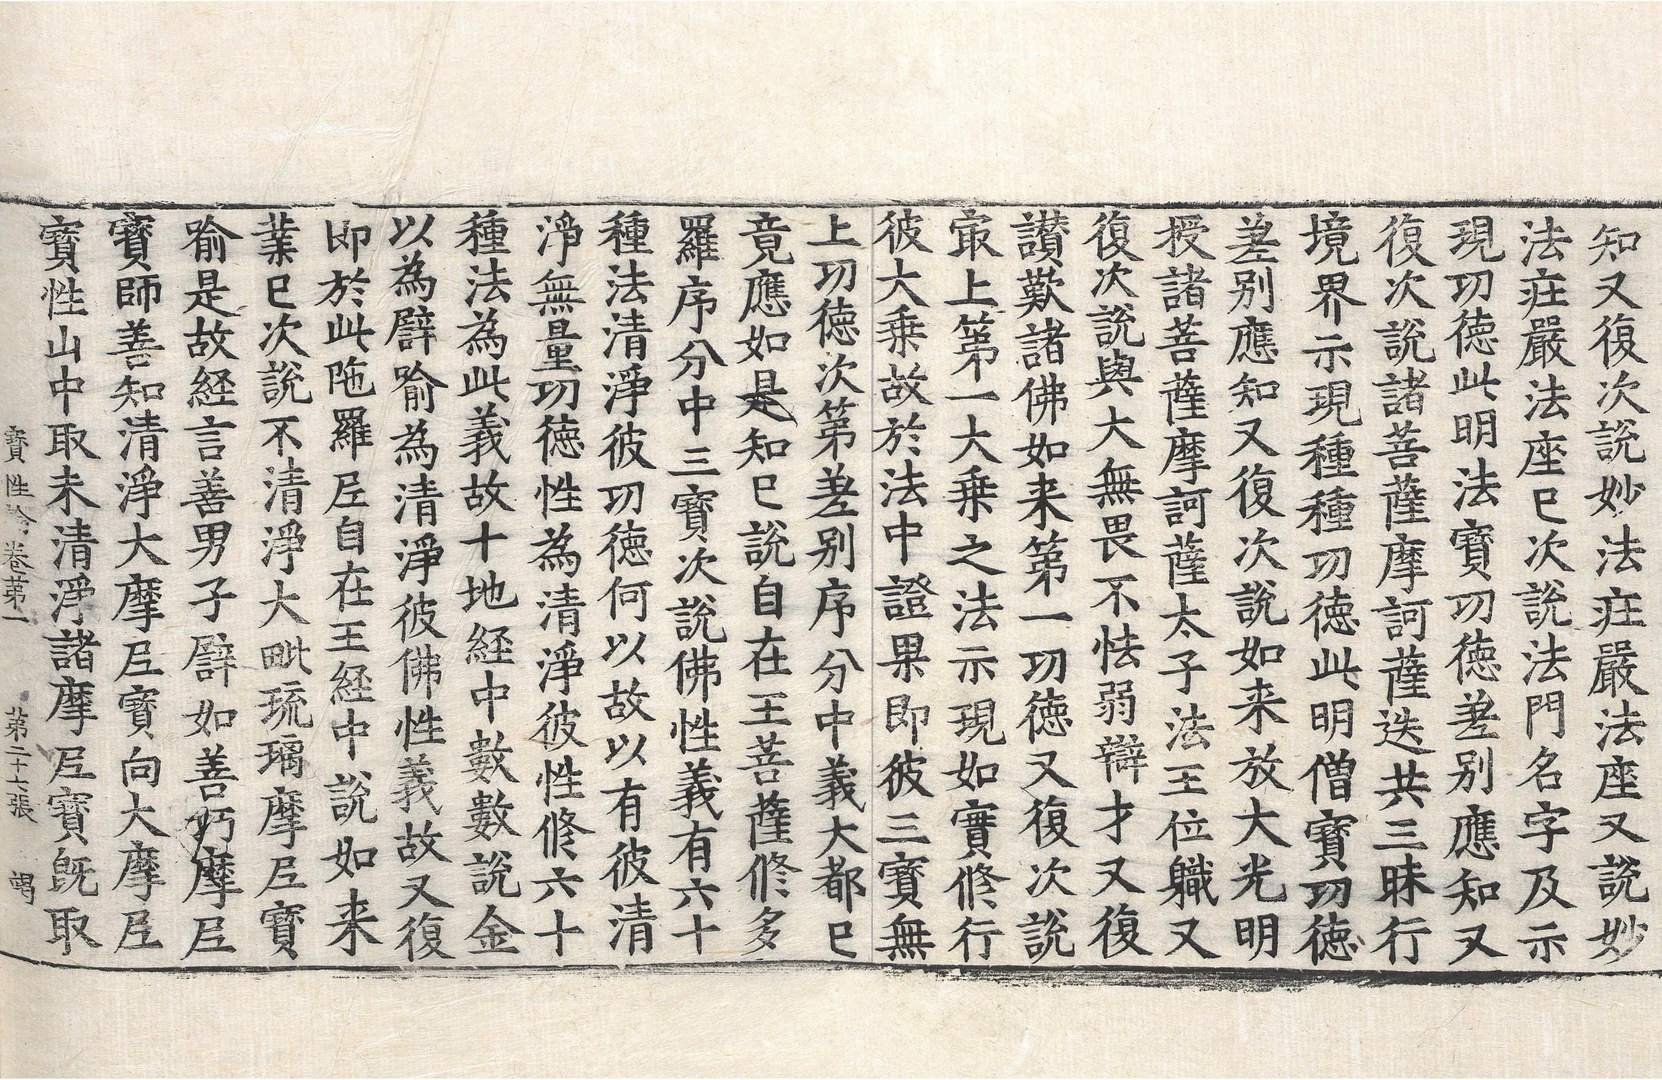 知又復次說妙法莊嚴法座又說妙
法莊嚴法座已次說法門名字及示
現功德此明法寶功德差別應知又
復次說諸菩薩摩訶薩迭共三昧行
境界示現種種功德此明僧寶功德
差別應知又復次說如来放大光明
授諸菩薩摩訶薩太子法王位軄又
復次說與大無畏不怯弱辯才又復
讃歎諸佛如来第一功德又復次說
㝡上第一大乗之法示現如實修行
彼大乗故於法中證果即彼三寶無
上功德次第差別序分中義大都已
竟應如是知已說自在王菩薩修多
羅序分中三寶次說佛性義有六十
種法清淨彼功德何以故以有彼清
淨無量功德性為清淨彼性修六十
種法為此義故十地経中數數說金
以為譬喻為清淨彼佛性義故又復
即於此陁羅尼自在王経中說如来
業已次說不清淨大毗琉璃摩尼寶
喻是故経言善男子譬如善巧摩尼
寶師善知清淨大摩尼寶向大摩尼
寶性山中取未清淨諸摩尼寶既取
寶性論卷第一 第二十七張 竭